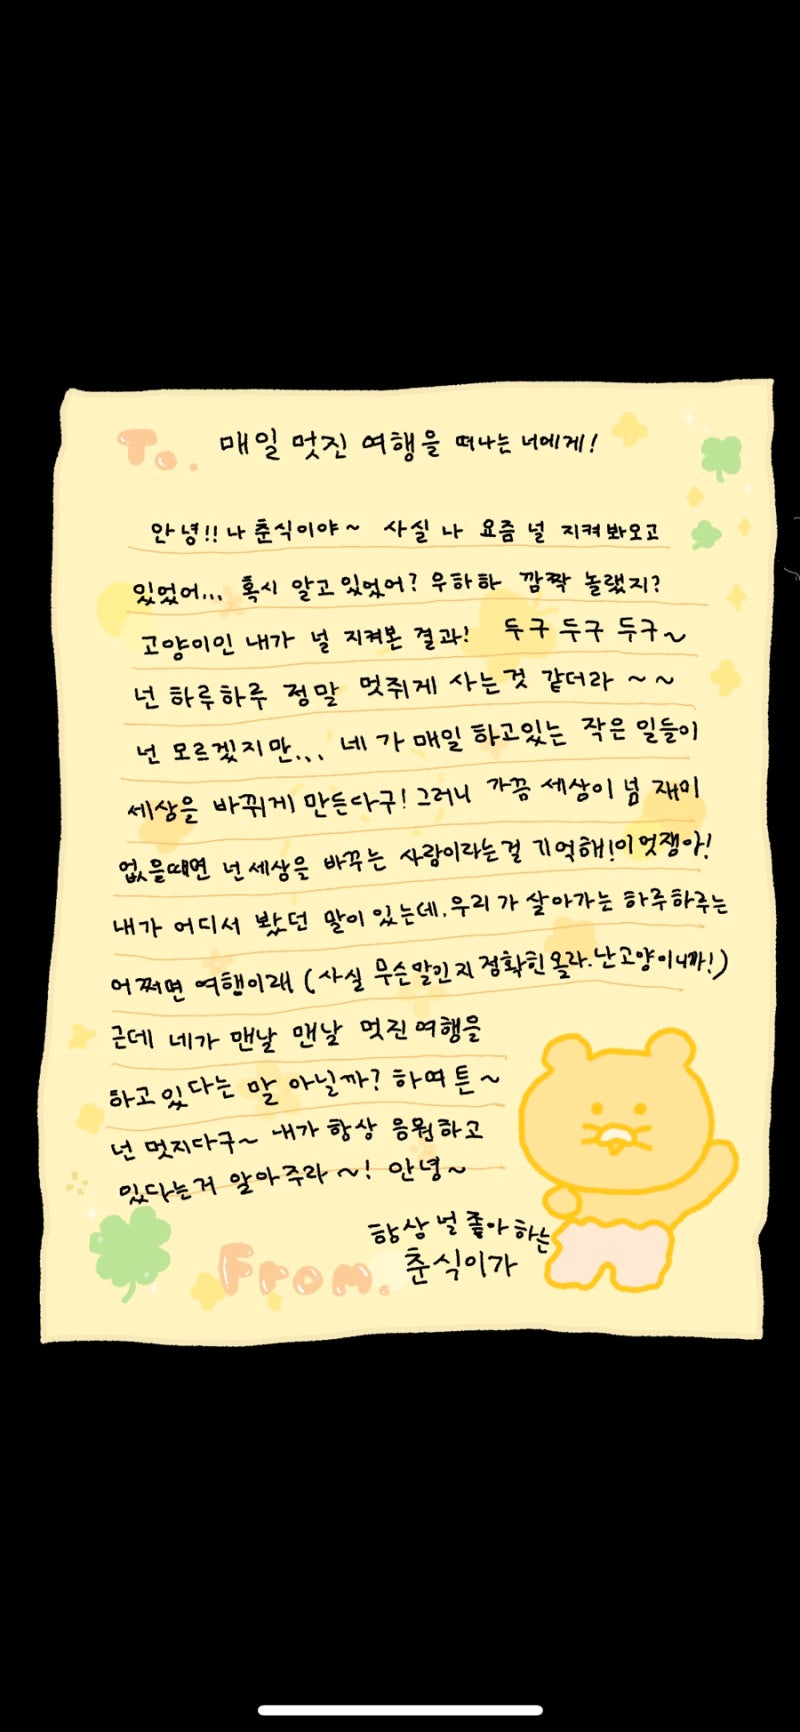 To. 매일 멋진 여행을 떠나는 너에게!
안녕!! 나 춘식이야~ 사실 나 요즘 널 지켜봐오고
있었어... 혹시 알고있었어? 우하하 깜짝 놀랬지?
고양이인 내가 널 지켜본 결과! 두구두구두구~
넌 하루하루 정말 멋쥐게 사는것 같더라~~
넌 모르겠지만... 네가 매일 하고있는 작은 일들이
세상을 바뀌게 만든다구! 그러니 가끔 세상이 넘 재미
없을때면 넌 세상을 바꾸는 사람이라는걸 기억해! 이 멋쟁아!
내가 어디서 봤던 말이 있는데, 우리가 살아가는 하루하루는
어쩌면 여행이래 (사실 무슨말인지 정확힌 몰라. 난 고양이니까!)
근데 네가 맨날 맨날 멋진 여행을
하고있다는 말 아닐까? 하여튼~
넌 멋지다구~ 내가 항상 응원하고
있다는거 알아주라~! 안녕~
항상 널 좋아하는
From. 춘식이가